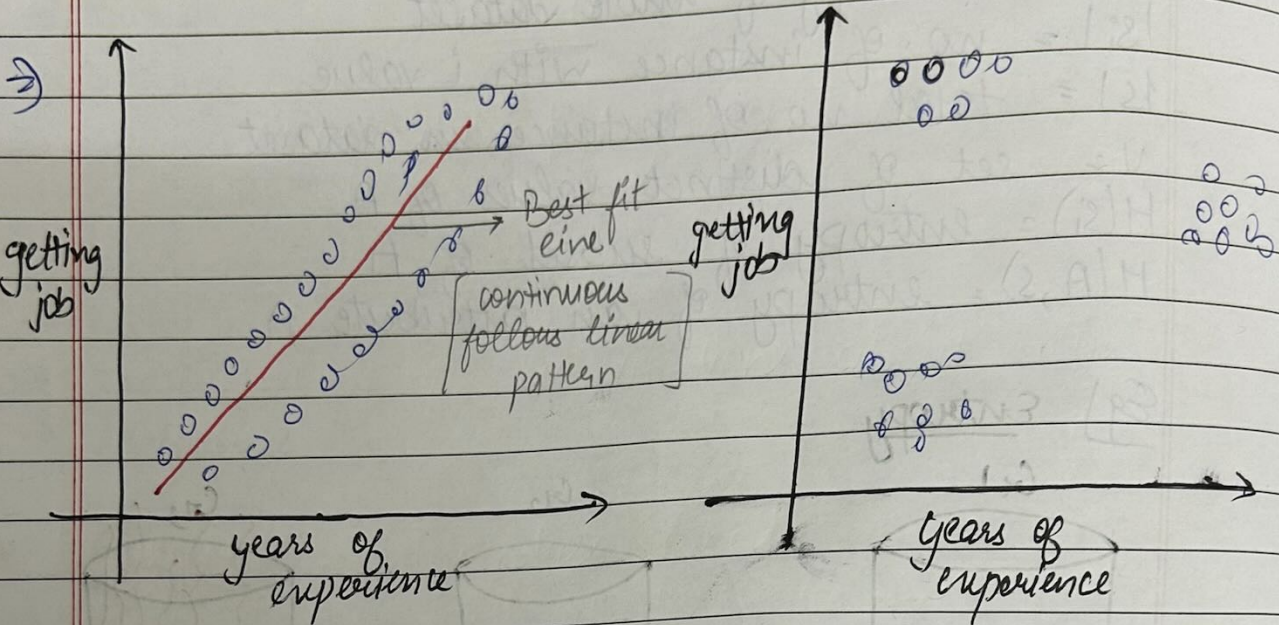 getting
job
Best fit
line
[continuous
follows linear
pattern]
years of
experience
getting
job
years of
experience